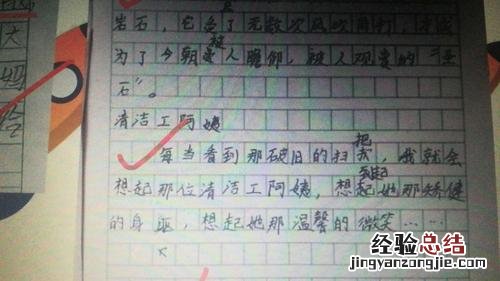 岩石，它受了无数次风吹雨打，才成
为了今朝被人瞻仰，被人观赏的"怪
石"。
清洁工阿姨
每当看到那破旧的扫把，我就会
想起那位清洁工阿姨，想起她那矫健
的身躯，想起她那温馨的微笑……
经验总结
jingyanzongjie.com